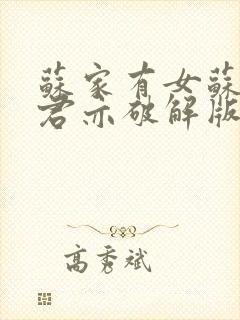 蘇家有女蘇
君亦破解版
高秀斌